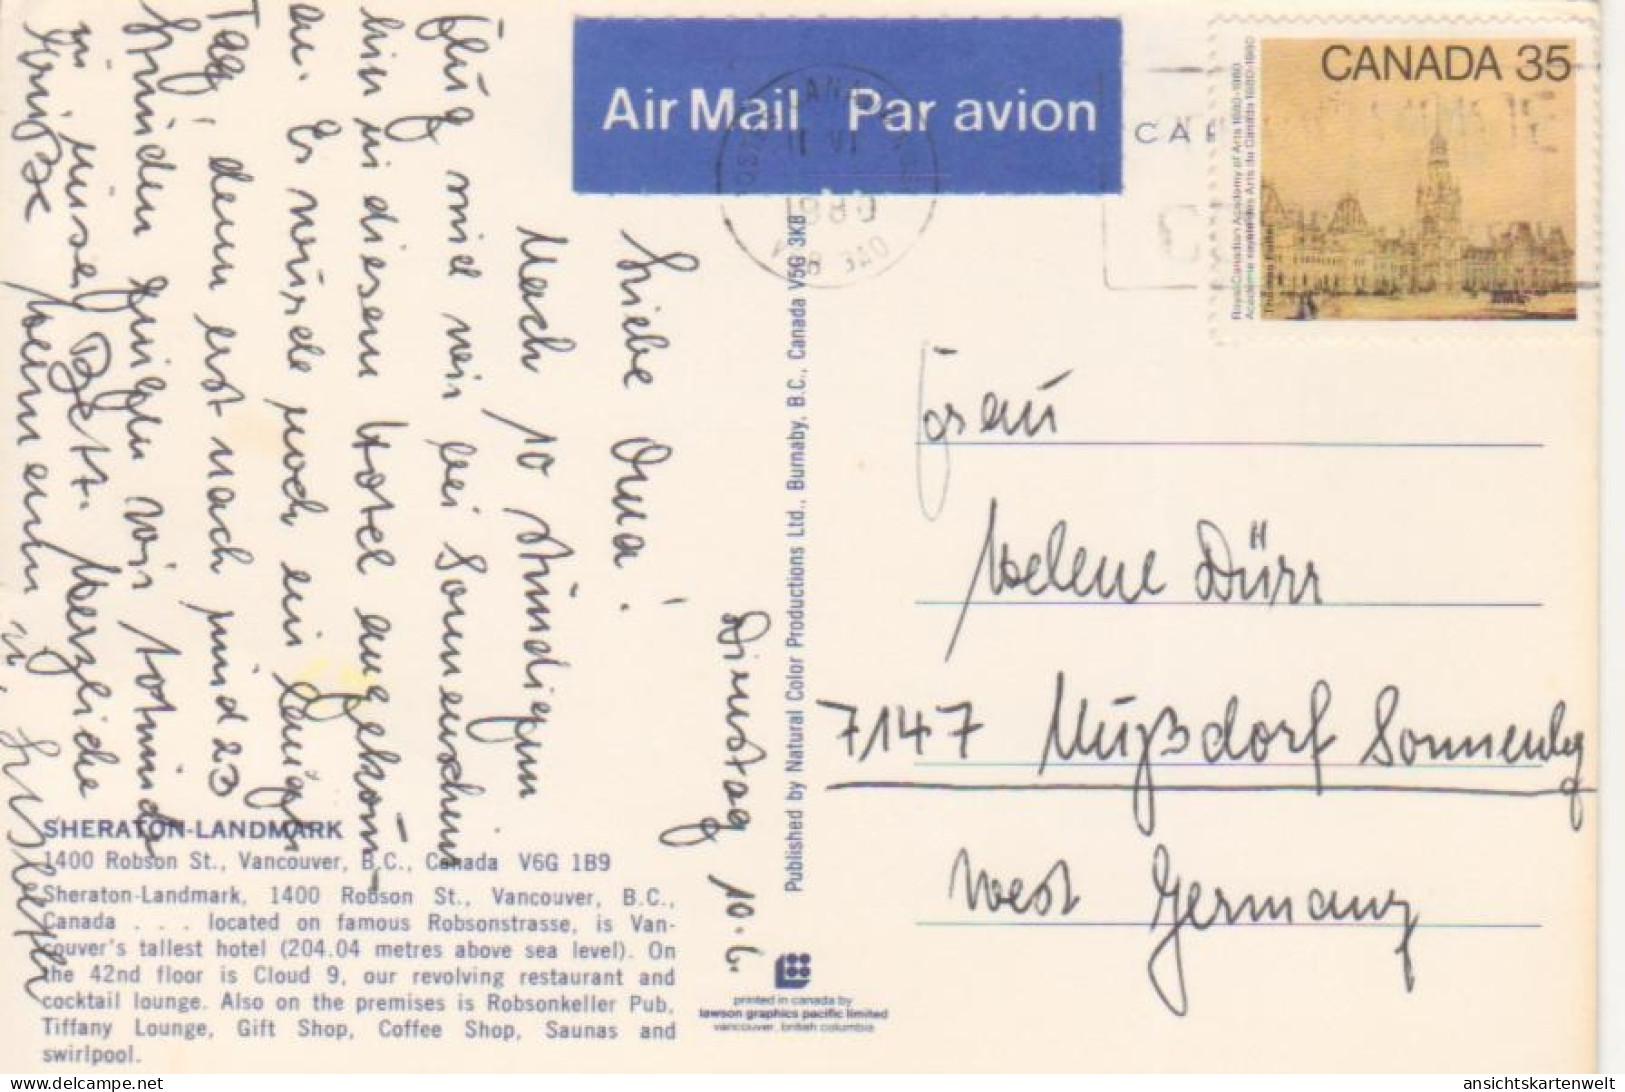 Air Mail Par avion
CANADA 35
Royal Canadian Academy of Arts 1880-1980
Académie royale des Arts du Canada 1880-1980
Thomas Fuller
CANADA
11 VI
1980
V6B 3A0
Dienstag 10.6.
Liebe Oma!
Nach 10 stündigem
Flug sind wir bei Sonnenschein
hier in diesem Hotel angekom-
en. Es würde noch ein langer
Tag, denn erst nach sind 23
Stunden gingen wir todmüde
in unser Bett. Herzliche
Grüße
Frau
Helene Dürr
7147 Nußdorf Sonnenbg
West Germany
Published by Natural Color Productions Ltd., Burnaby, B.C., Canada V5G 3K8
SHERATON-LANDMARK
1400 Robson St., Vancouver, B.C., Canada V6G 1B9
Sheraton-Landmark, 1400 Robson St., Vancouver, B.C.,
Canada . . . located on famous Robsonstrasse, is Van-
couver's tallest hotel (204.04 metres above sea level). On
the 42nd floor is Cloud 9, our revolving restaurant and
cocktail lounge. Also on the premises is Robsonkeller Pub,
Tiffany Lounge, Gift Shop, Coffee Shop, Saunas and
swirlpool.
printed in canada by
lawson graphics pacific limited
vancouver, british columbia
ansichtskartenwelt @ delcampe.net
ansichtskartenwelt